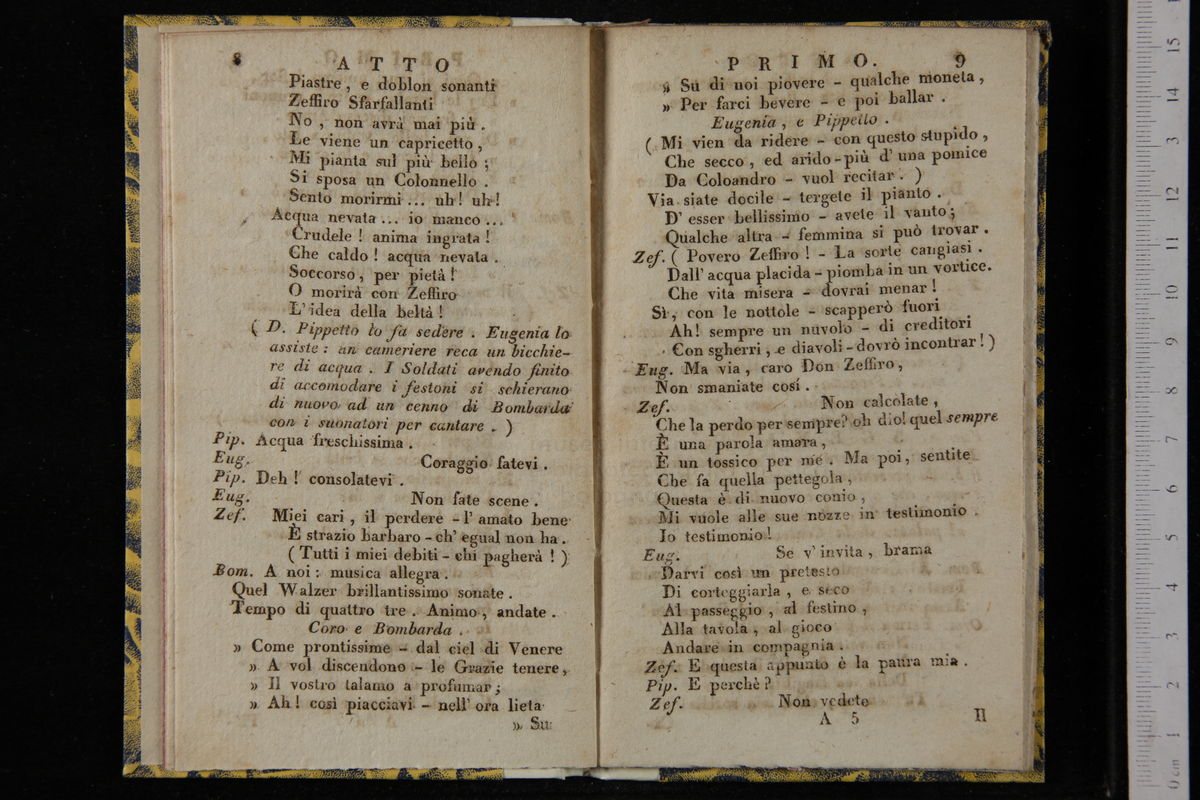 8 ATTO
Piastre, e doblon sonanti
Zeffiro Sfarfallanti
No, non avrà mai più.
Le viene un capricetto,
Mi pianta sul più bello;
Si sposa un Colonnello.
Sento morirmi... uh! uh!
Acqua nevata... io manco...
Crudele! anima ingrata!
Che caldo! acqua nevata.
Soccorso, per pietà!
O morirà con Zeffiro
L'idea della beltà!
( D. Pippetto lo fa sedere. Eugenia lo
assiste: un cameriere reca un bicchie-
re di acqua. I Soldati avendo finito
di accomodare i festoni si schierano
di nuovo ad un cenno di Bombarda
con i suonatori per cantare. )
Pip. Acqua freschissima.
Eug. Coraggio fatevi.
Pip. Deh! consolatevi.
Eug. Non fate scene.
Zef. Miei cari, il perdere - l'amato bene
È strazio barbaro - ch'egual non ha.
( Tutti i miei debiti - chi pagherà! )
Bom. A noi: musica allegra.
Quel Walzer brillantissimo sonate.
Tempo di quattro tre. Animo, andate.
Coro e Bombarda.
» Come prontissime - dal ciel di Venere
» A vol discendono - le Grazie tenere,
» Il vostro talamo a profumar;
» Ah! così piacciavi - nell'ora lieta
» Su
PRIMO. 9
» Su di noi piovere - qualche moneta,
» Per farci bevere - e poi ballar.
Eugenia, e Pippetto.
( Mi vien da ridere - con questo stupido,
Che secco, ed arido - più d'una pomice
Da Coloandro - vuol recitar. )
Via siate docile - tergete il pianto.
D'esser bellissimo - avete il vanto;
Qualche altra - femmina si può trovar.
Zef. ( Povero Zeffiro! - La sorte cangiasi.
Dall'acqua placida - piomba in un vortice.
Che vita misera - dovrai menar!
Sì, con le nottole - scapperò fuori
Ah! sempre un nuvolo - di creditori
Con sgherri, e diavoli - dovrò incontrar! )
Eug. Ma via, caro Don Zeffiro,
Non smaniate così.
Zef. Non calcolate,
Che la perdo per sempre? oh dio! quel sempre
È una parola amara,
È un tossico per me. Ma poi, sentite
Che fa quella pettegola,
Questa è di nuovo conio,
Mi vuole alle sue nozze in testimonio.
Io testimonio!
Eug. Se v'invita, brama
Darvi così un pretesto
Di corteggiarla, e seco
Al passeggio, al festino,
Alla tavola, al gioco
Andare in compagnia.
Zef. E questa appunto è la paura mia.
Pip. E perchè?
Zef. Non vedete
A 5 Il